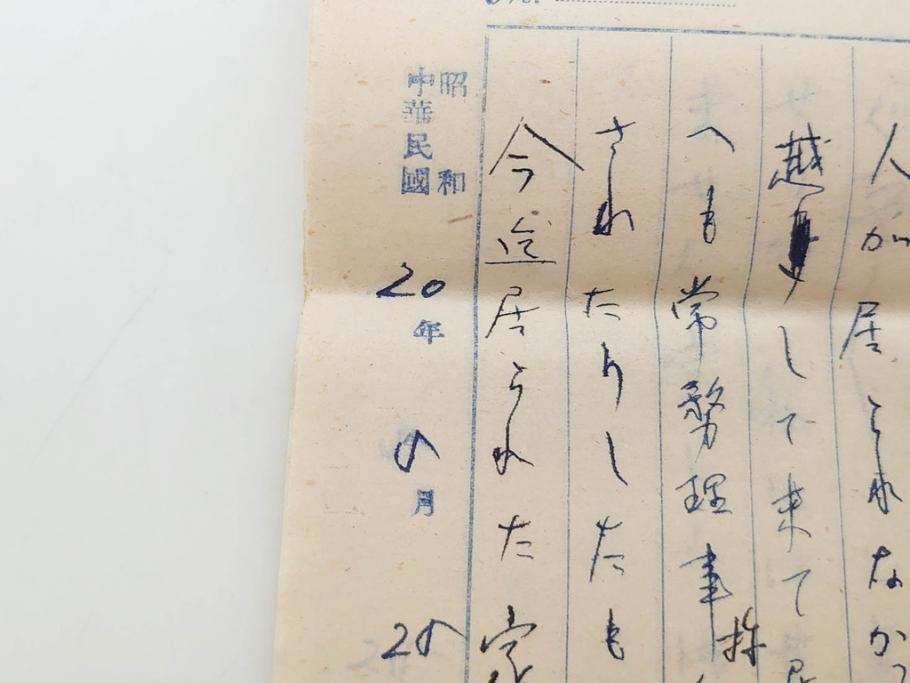 人が居られなか
越して来て
へも常務理事
されたりしたも
今迄居られた家
昭和
中華民國
20年
月